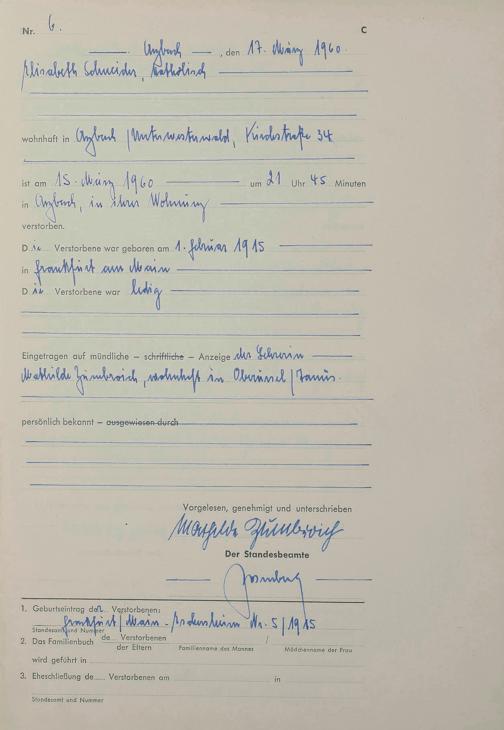 Nr. 6. C
Arzbach, den 17. März 1960.
Elisabeth Schneider, katholisch
wohnhaft in Arzbach/Unterwesterwald, Kirchstraße 34
ist am 15. März 1960 um 21 Uhr 45 Minuten
in Arzbach, in ihrer Wohnung
verstorben.
Die Verstorbene war geboren am 1. Februar 1915
in Frankfurt am Main
Die Verstorbene war ledig
Eingetragen auf mündliche – schriftliche – Anzeige der Lehrerin
Mathilde Zumbroich, wohnhaft in Oberursel/Taunus.
persönlich bekannt – ausgewiesen durch
Vorgelesen, genehmigt und unterschrieben
Mathilde Zumbroich
Der Standesbeamte
1. Geburtseintrag der Verstorbenen:
Frankfurt/Main - Nr. 5/1915
Standesamt und Nummer
2. Das Familienbuch de Verstorbenen /
der Eltern Familienname des Mannes Mädchenname der Frau
wird geführt in
3. Eheschließung de Verstorbenen am in
Standesamt und Nummer